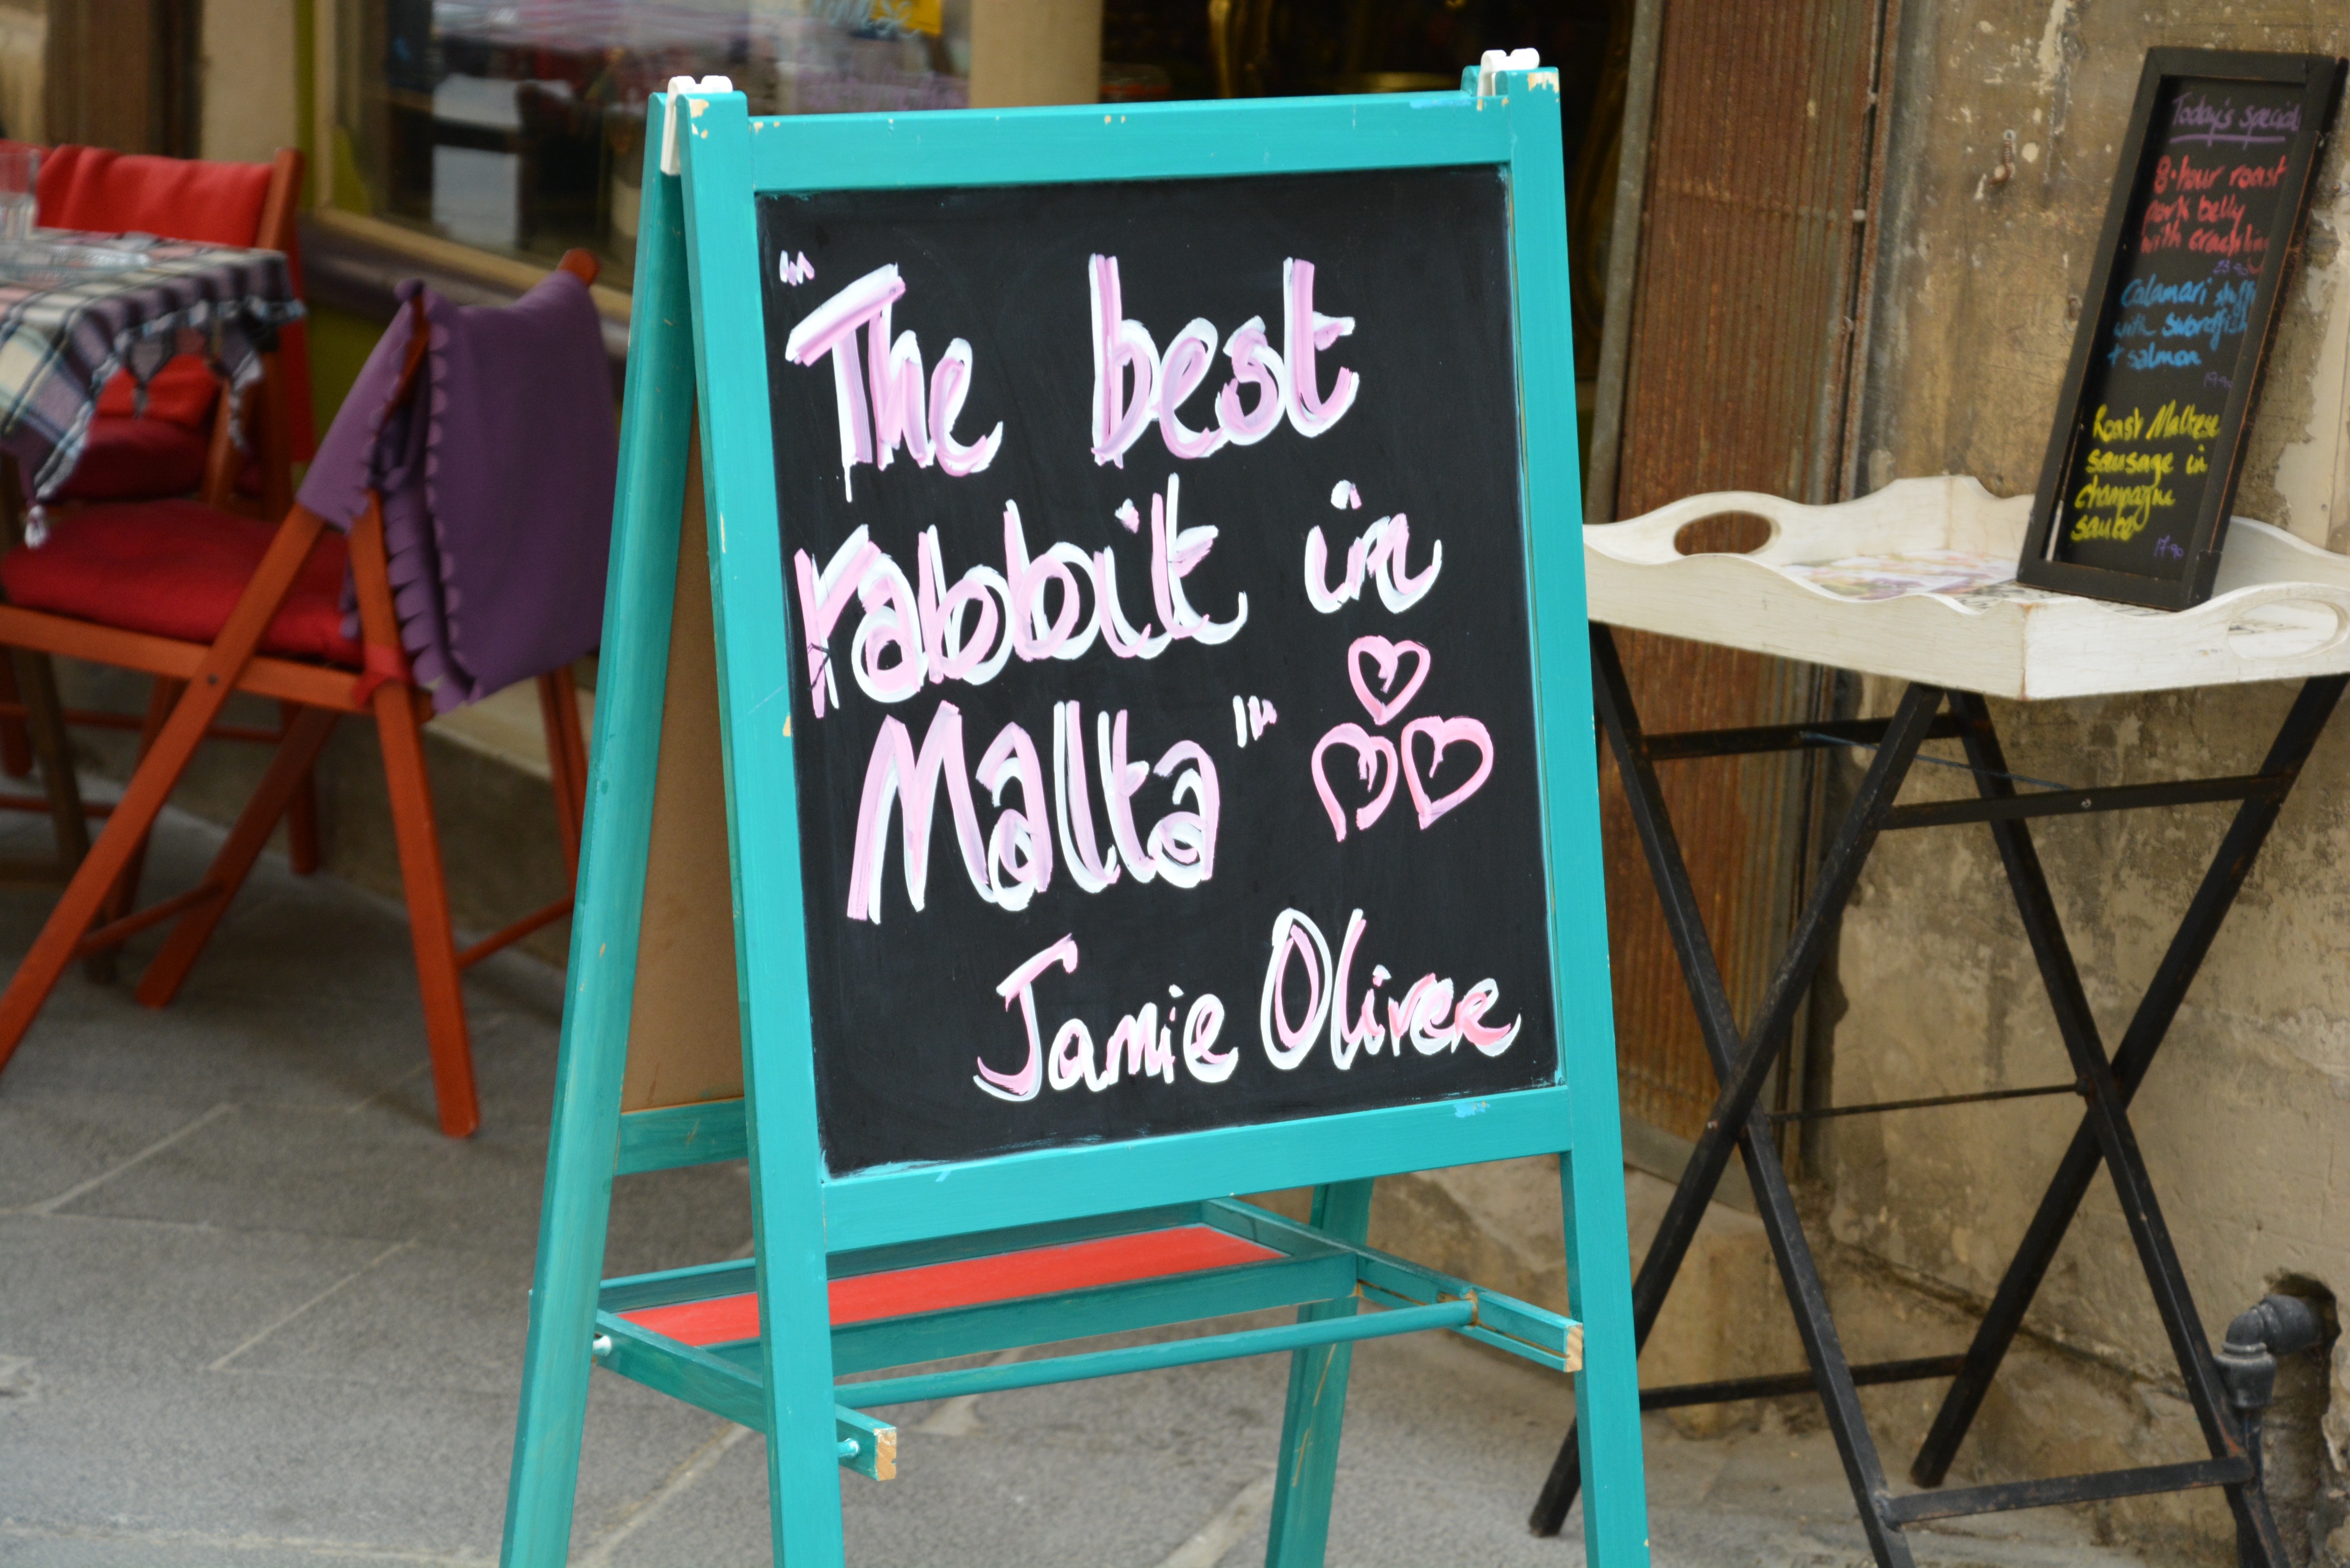 "The best
rabbit in
Malta"
Jamie Oliver
Today's special
8-hour roast
pork belly
with crackling
23.90
Calamari stuff
with swordfish
+ salmon
19.90
Roast Maltese
sausage in
champagne
sauce
17.90